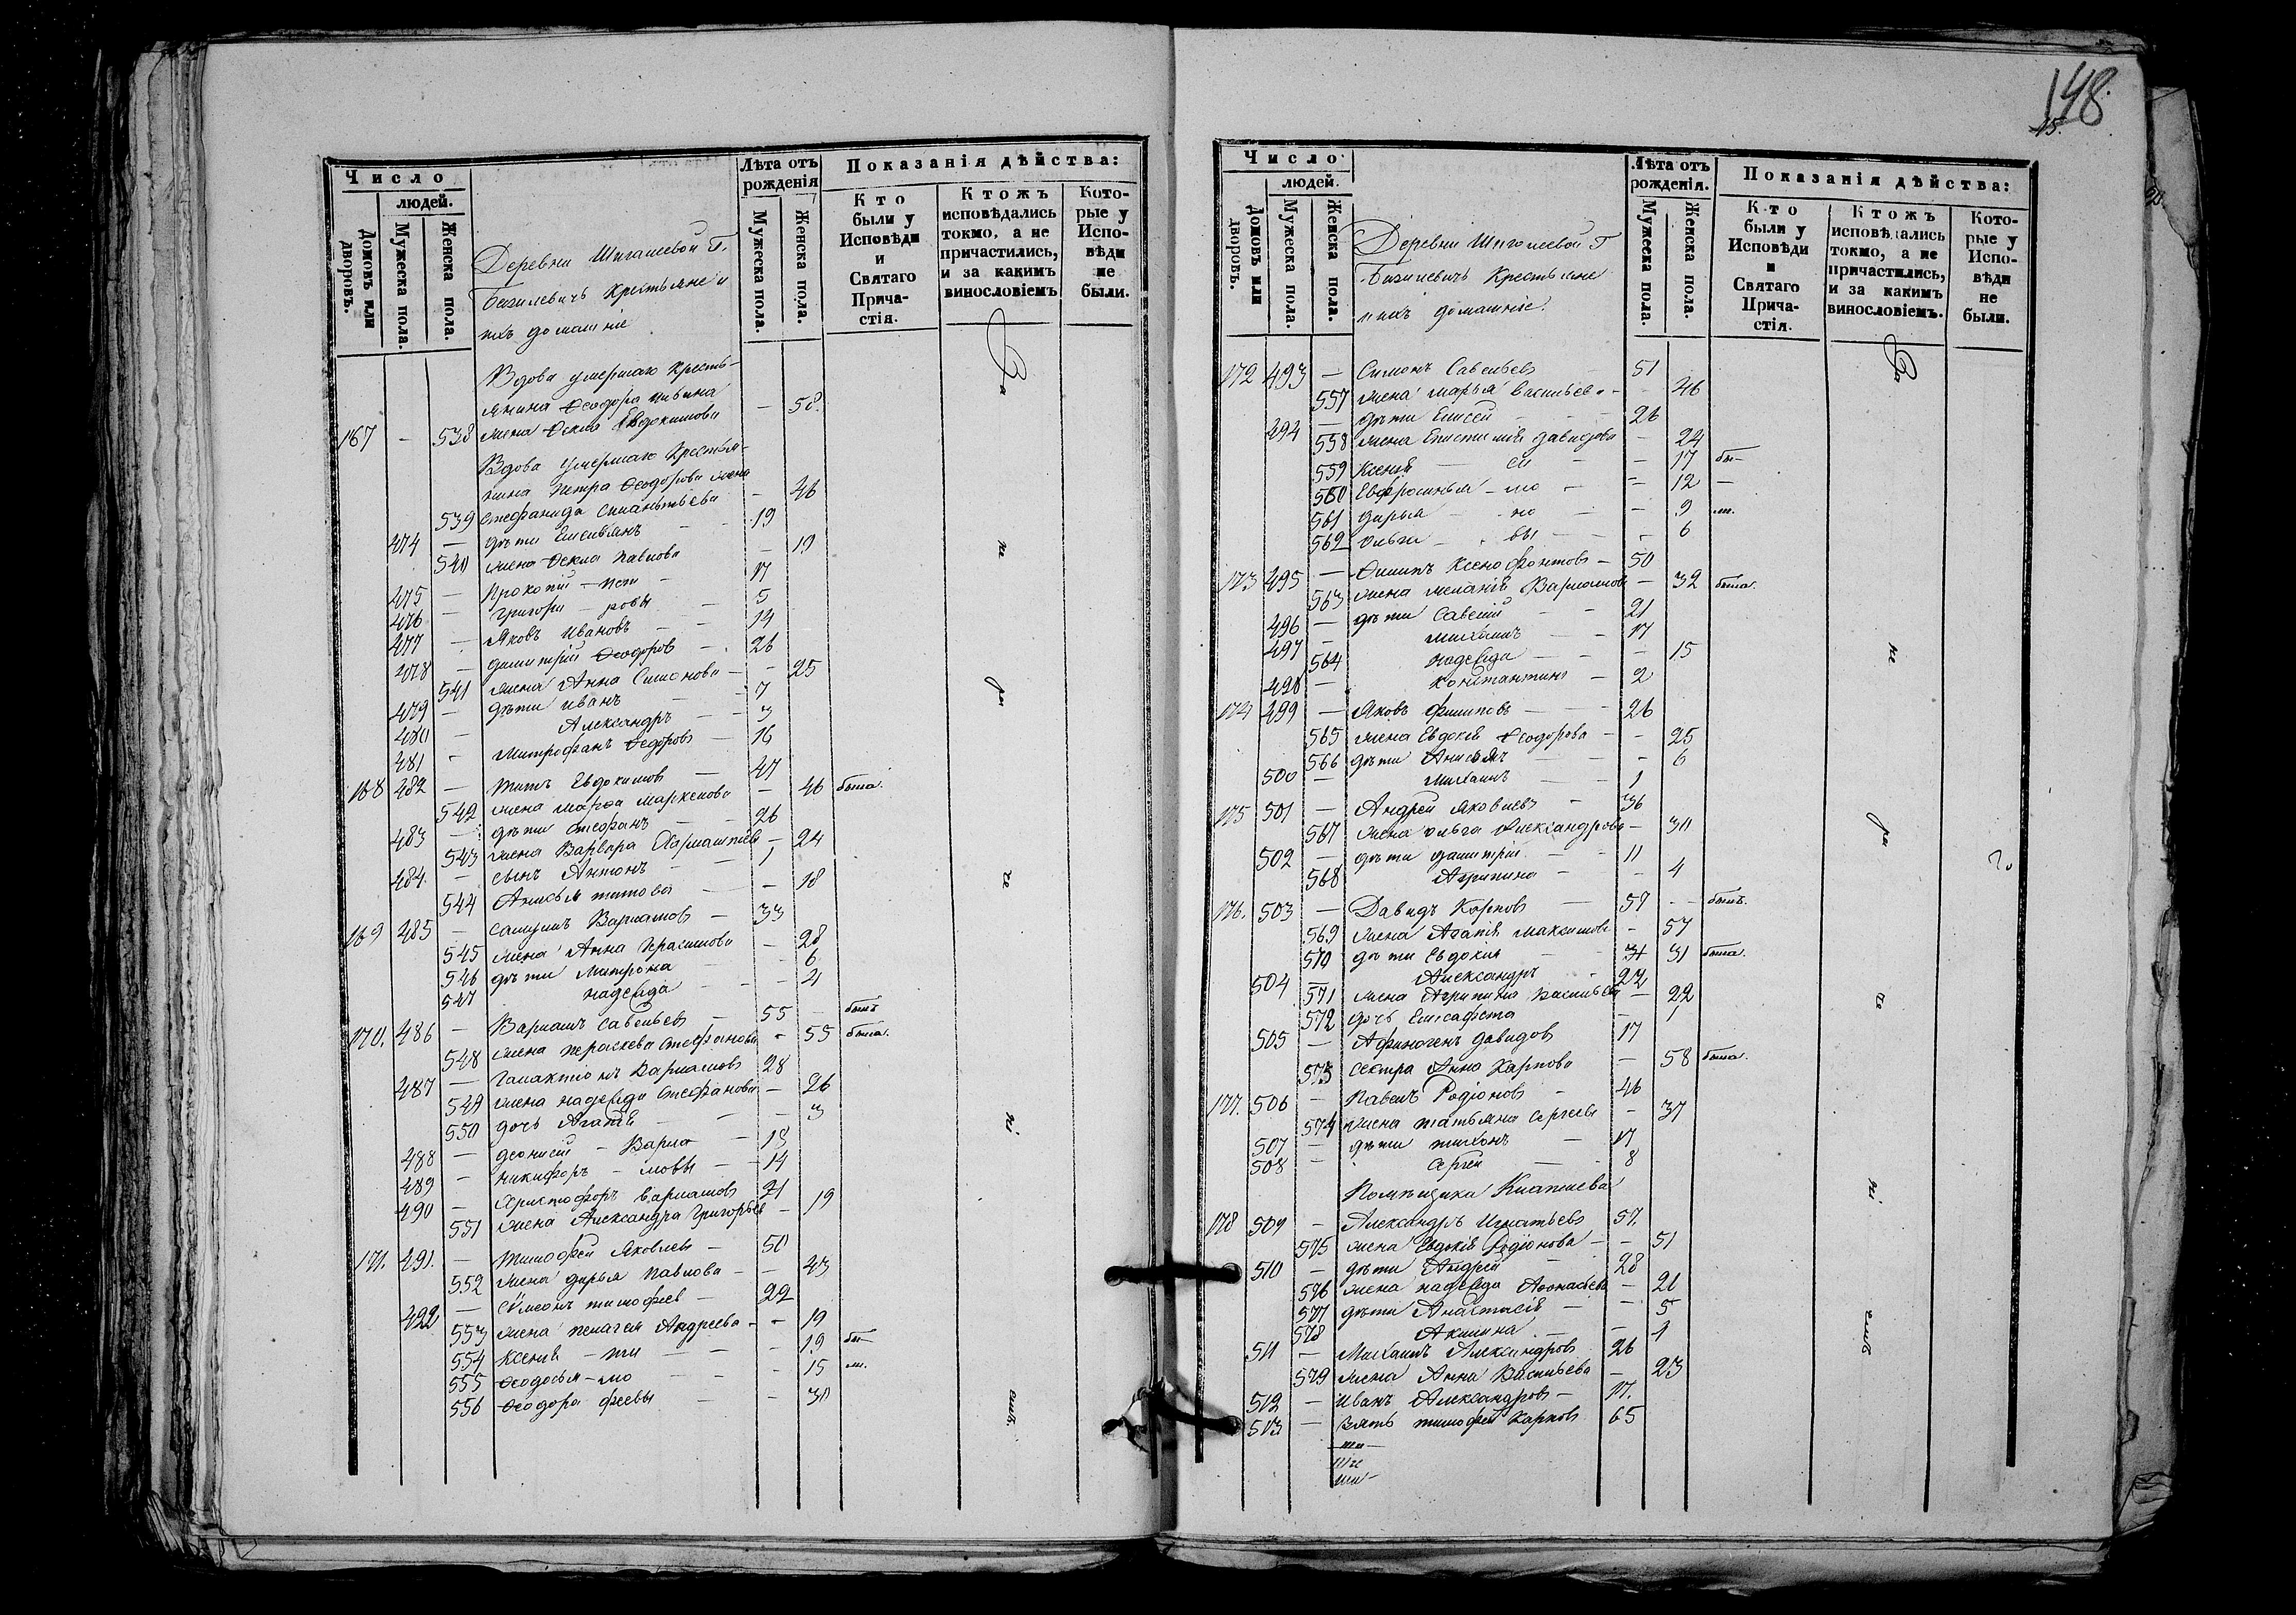 148.
15.
Число
людей.
Домовъ или дворовъ.
Мужеска пола.
Женска пола.
Деревни Шигашевой Г.
Базилевичъ Крестьяне и
ихъ домашніе
Лѣта отъ рожденія
Мужеска пола.
Женска пола.
Показанія дѣйства:
Кто были у Исповѣди и Святаго Прича-стія.
Ктожъ исповѣдались токмо, а не причастились, и за какимъ винословіемъ
Кото-рые у Испо-вѣди не были.
Вдова умершаго Кресть-
янина Ѳеодора
167 - 538 жена Ѳекла Евдокимова - 58.
Вдова умершаго Крестья-
нина Петра Ѳеодорова жена
539 Стефанида - 46
474 — дѣти 19
540 жена Ѳекла Павлова - 19
475 — Прокопій - Пет 17
476 — Григори - ровы 5
477 — Яковъ Ивановъ 14
478 — Димитрій Ѳеодоровъ 26
541 жена Анна Симонова - 25
479 — дѣти Иванъ 7
480 — Александръ 3
481 - Митрофанъ Ѳедоровъ 16
168 482 — Титъ Евдокимовъ 47
542 жена Марѳа - 46 была.
483 — дѣти Стефанъ 26
543 жена Варвара - 24
484. — сынъ Антонъ 1
544 Анисья Титова - 18
169 485 — Самуилъ Варламовъ 33
545 жена Анна Герасимова - 28
546 дѣти Матрона - 6
547 Надежда - 4
170. 486 — Варлаамъ Савельевъ 55 былъ
548 жена Параскева Стефанова - 55 была.
487 — Галактіонъ Варламовъ 28
549 жена Надежда Стефанова - 26
550 дочь Агаѳія - 3
488 — Діонисій - Варла 18
489 — Никифоръ - мовы 14
490 — Христофоръ Варламовъ 21
551 жена Александра Григорьева - 19
171. 491. — Тимофей Яковлевъ 50
552 жена Дарья Павлова - 43
492 — Сѵмеонъ Тимофеев 22
553 жена Пелагея Андреева - 19
554 Ксенія - Ти - 19 бы-
555 Ѳеодосья - мо - 15 ли.
556 Ѳеодора феевы -
За
не
ра
че
ні
емъ
Число
людей.
Домовъ или дворовъ.
Мужеска пола.
Женска пола.
Деревни Шигашевой Г
Базилевичъ Крестьяне
и ихъ домашніе.
Лѣта отъ рожденія.
Мужеска пола.
Женска пола.
Показанія дѣйства:
Кто были у Исповѣди и Святаго Прича-стія.
Ктожъ исповѣдались токмо, а не причастились, и за какимъ винословіемъ.
Кото-рые у Испо-вѣди не были.
172 493 — Симонъ Савельевъ 51
557 жена Марья Васильева - 46
494 — дѣти Елисей 26
558 жена Епистимія Давидова - 24
559 Ксенія - Си - 17 бы-
560 Евфросинья - мо - 12 —
561 Дарья - но - 9 ли.
562 Ольга - вы - 6
173 495 — Филипъ Ксенофонтовъ 50
563 жена Меланія Варламова - 32 была.
496 — дѣти Савелій 21
497 - Михаилъ 17
564 Надежда - 15
498 — Константинъ 2
174 499 — Яковъ Филиповъ 26
565 жена Евдокія Ѳеодорова - 25
566 дѣти Анисья - 6
500 — Михаилъ 1
175 501 — Андрей Яковлевъ 36
567 жена Ольга Александрова - 30
502 — дѣти Димитрій 11
568 Агрипина - 4
176. 503 — Давидъ Карповъ 59 былъ.
569 жена Агапія Максимова - 57
570 дѣти Евдокія 31 была.
504 — Александръ
571 жена Агрипина Васильева - 22
572 дочь Елисафета - 1
505 — Афиногенъ Давидовъ 17
573 сестра Анна Карпова - 58 была.
177. 506 — Павелъ Родіоновъ 46
574 жена Татьяна Сергеева - 37
507 — дѣти Тихонъ 17
508 — Сергей 8
Помѣщика
178 509 — Александръ Игнатьевъ 57.
575 жена Евдокія Родіонова - 51
510 — дѣти Андрей 28
576 жена Надежда Аѳонасьева -
577 дѣти Анастасія - 5
578 Акилина - 1
511 — Михаилъ Александровъ 26
579 жена Анна Васильева - 23
512 — Иванъ Александровъ 17.
513 — зять Тимофей Карповъ 65
За
не
ра
че
ні
емъ